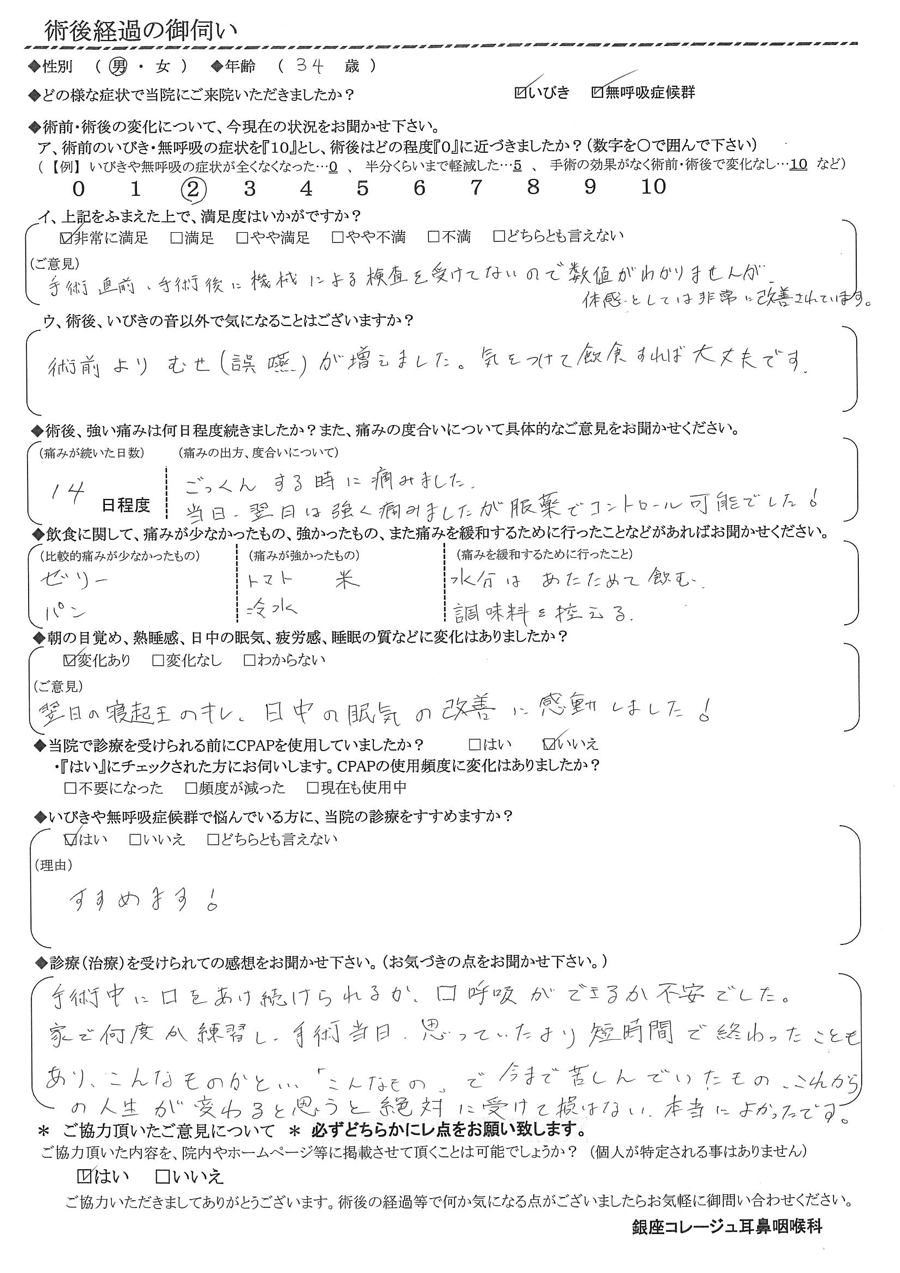 術後経過の御伺い
◆性別 ( 男 ・ 女 ) ◆年齢 ( 34 歳 )
◆どの様な症状で当院にご来院いただきましたか? ☑いびき ☑無呼吸症候群
◆術前・術後の変化について、今現在の状況をお聞かせ下さい。
ア、術前のいびき・無呼吸の症状を『10』とし、術後はどの程度『0』に近づきましたか?(数字を○で囲んで下さい)
(【例】いびきや無呼吸の症状が全くなくなった…0 、 半分くらいまで軽減した…5 、 手術の効果がなく術前・術後で変化なし…10 など)
0 1 ② 3 4 5 6 7 8 9 10
イ、上記をふまえた上で、満足度はいかがですか?
☑非常に満足 □満足 □やや満足 □やや不満 □不満 □どちらとも言えない
(ご意見)
手術直前、手術後に機械による検査を受けてないので数値がわかりませんが、
体感としては非常に改善されています。
ウ、術後、いびきの音以外で気になることはございますか?
術前より むせ(誤嚥)が増えました。気をつけて飲食すれば大丈夫です。
◆術後、強い痛みは何日程度続きましたか?また、痛みの度合いについて具体的なご意見をお聞かせください。
(痛みが続いた日数) (痛みの出方、度合いについて)
ごっくん する時に痛みました。
14 日程度
当日、翌日は強く痛みましたが服薬でコントロール可能でした!
◆飲食に関して、痛みが少なかったもの、強かったもの、また痛みを緩和するために行ったことなどがあればお聞かせください。
(比較的痛みが少なかったもの) (痛みが強かったもの) (痛みを緩和するために行ったこと)
ゼリー トマト 米 水分は あたためて飲む。
パン 冷水 調味料を控える。
◆朝の目覚め、熟睡感、日中の眠気、疲労感、睡眠の質などに変化はありましたか?
☑変化あり □変化なし □わからない
(ご意見)
翌日の寝起きのキレ、日中の眠気の改善に感動しました!
◆当院で診療を受けられる前にCPAPを使用していましたか? □はい ☑いいえ
・『はい』にチェックされた方にお伺いします。CPAPの使用頻度に変化はありましたか?
□不要になった □頻度が減った □現在も使用中
◆いびきや無呼吸症候群で悩んでいる方に、当院の診療をすすめますか?
☑はい □いいえ □どちらとも言えない
(理由)
すすめます!
◆診療(治療)を受けられての感想をお聞かせ下さい。(お気づきの点をお聞かせ下さい。)
手術中に口をあけ続けられるか、口呼吸ができるか不安でした。
家で何度か練習し、手術当日、思っていたより短時間で終わったことも
あり、こんなものかと…「こんなもの」で今まで苦しんでいたもの、これから
の人生が変わると思うと絶対に受けて損はない。本当によかったです。
* ご協力頂いたご意見について * 必ずどちらかにレ点をお願い致します。
ご協力頂いた内容を、院内やホームページ等に掲載させて頂くことは可能でしょうか? (個人が特定される事はありません)
☑はい □いいえ
ご協力いただきましてありがとうございます。術後の経過等で何か気になる点がございましたらお気軽に御問い合わせください。
銀座コレージュ耳鼻咽喉科